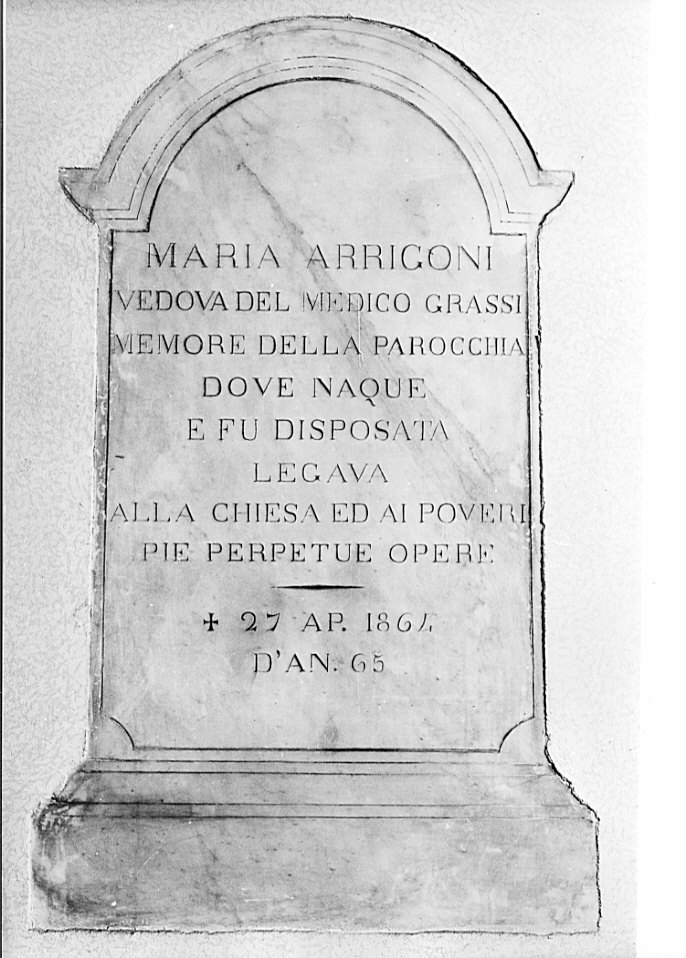 MARIA ARRIGONI
VEDOVA DEL MEDICO GRASSI
MEMORE DELLA PAROCCHIA
DOVE NAQUE
E FU DISPOSATA
LEGAVA
ALLA CHIESA ED AI POVERI
PIE PERPETUE OPERE
✝ 27 AP. 1864
D'AN. 65